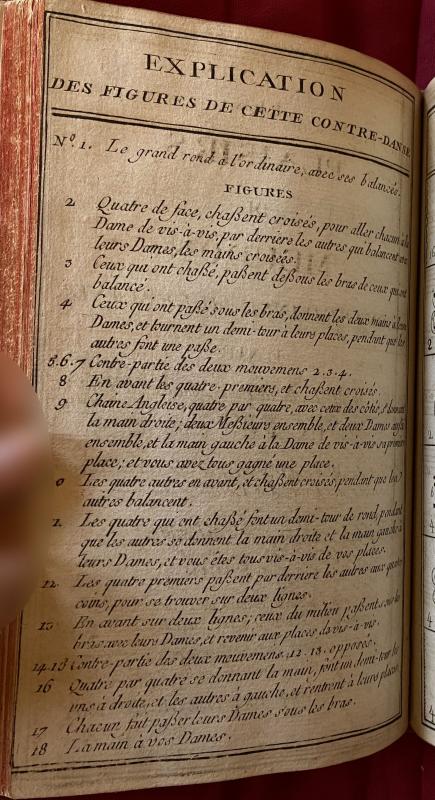 EXPLICATION
DES FIGURES DE CETTE CONTRE-DANSE
Nº. 1. Le grand rond à l'ordinaire, avec ses balancés.
FIGURES
2 Quatre de face, chaßent croisés, pour aller chacun à la
Dame de vis-à-vis, par derriere les autres qui balancent avec
leurs Dames, les mains croisées.
3 Ceux qui ont chaßé, paßent deßous les bras de ceux qui ont
balancé.
4 Ceux qui ont paßé sous les bras, donnent les deux mains à leurs
Dames, et tournent un demi-tour à leurs places, pendant que les
autres font une paße.
5.6.7 Contre-partie des deux mouvemens 2.3.4.
8 En avant les quatre premiers, et chaßent croisés.
9 Chaine Angleise, quatre par quatre, avec ceux des côtés, se donnant
la main droite; deux Meßieurs ensemble, et deux Dames
ensemble, et la main gauche à la Dame de vis-à-vis sa premiere
place; et vous avez tous gagné une place.
0 Les quatre autres en avant, et chaßent croisés, pendant que les
autres balancent.
1. Les quatre qui ont chaßé font un demi-tour de rond, pendant
que les autres se donnent la main droite et la main gauche à
leurs Dames, et vous êtes tous vis-à-vis de vos places.
12. Les quatre premiers paßent par derriere les autres aux quatre
coins, pour se trouver sur deux lignes.
13 En avant sur deux lignes; ceux du milieu paßent sous les
bras avec leurs Dames, et revenir aux places de vis-à-vis.
14.15 Contre-partie des deux mouvemens, 12.13. opposés.
16 Quatre par quatre se donnant la main, font un demi-tour les
uns à droite, et les autres à gauche, et rentrent à leurs places.
17 Chacun fait paßer leurs Dames sous les bras.
18 La main à vos Dames.